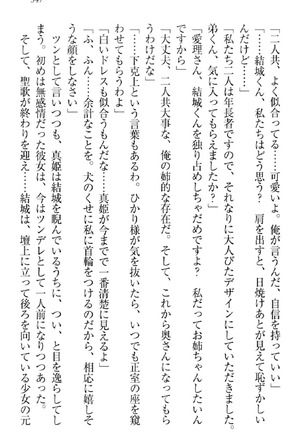 「二人共、よく似合ってる……可愛いよ。俺が言うんだ、自信を持っていい」
「……結城くん、私たちはどう思う？　肩を出すと、日焼けあとが見えて恥ずかしい
んだけど……」
「私たち二人は年長者ですので、それなりに大人びたデザインにしていただきました。
弟くん、気に入ってもらえましたか？」
「愛理さん、結城くんを独り占めしちゃだめですよ？　私だってお姉ちゃんしたい
ですから」
「大丈夫、二人共大事な、俺の姉的な存在だ。そして、これから奥さんになってもら
うわけだな」
「……下克上という言葉もあるわ。ひかり様が気を抜いたら、いつでも正室の座を窺
わせてもらうわよ」
「白いドレスも似合うもんだな。真姫が今までで一番清楚に見えるよ」
「ふ、ふん……余計なことを。犬のくせに私に首輪をつけるのだから、相応に嬉しそ
うな顔をしなさい」
　ツンとして言いつつも、真姫は結城を睨んでいるうちに、つい、と目を逸らしてし
まう。初めは無感情だった彼女は、今はツンデレとして一人前になりつつあった。
　そして、聖歌が終わりを迎え……結城は、壇上に立って後ろを向いている少女の元